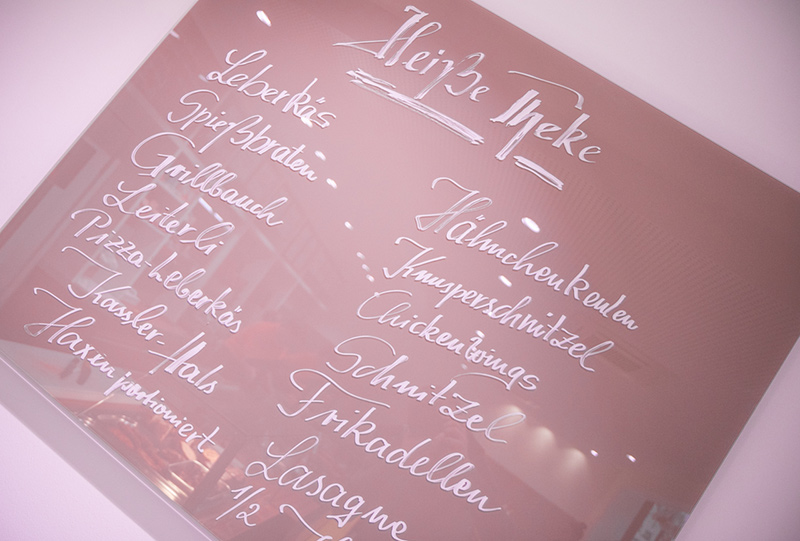 Heiße Theke
Leberkäs
Spießbraten
Grillbauch
Leiterli
Pizza-Leberkäs
Kassler-Hals
Haxen portioniert
Hähnchenkeulen
Knusperschnitzel
Chickenwings
Schnitzel
Frikadellen
Lasagne
1/2